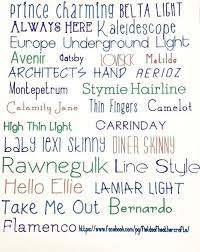 Prince charming BELTA LIGHT
ALWAYS HERE Kaleidescope
Europe Underground Light
Avenir Gatsby LOVESICK Matilda
ARCHITECTS HAND AERIOZ
Montepetrum Stymie Hairline
Calamity Jane Thin Fingers Camelot
HIGH THIN LIGHT CARRINDAY
baby lexi skinny DINER SKINNY
Rawnegulk Line Style
Hello Ellie LANIAR LIGHT
Take Me Out Bernardo
Flamenco